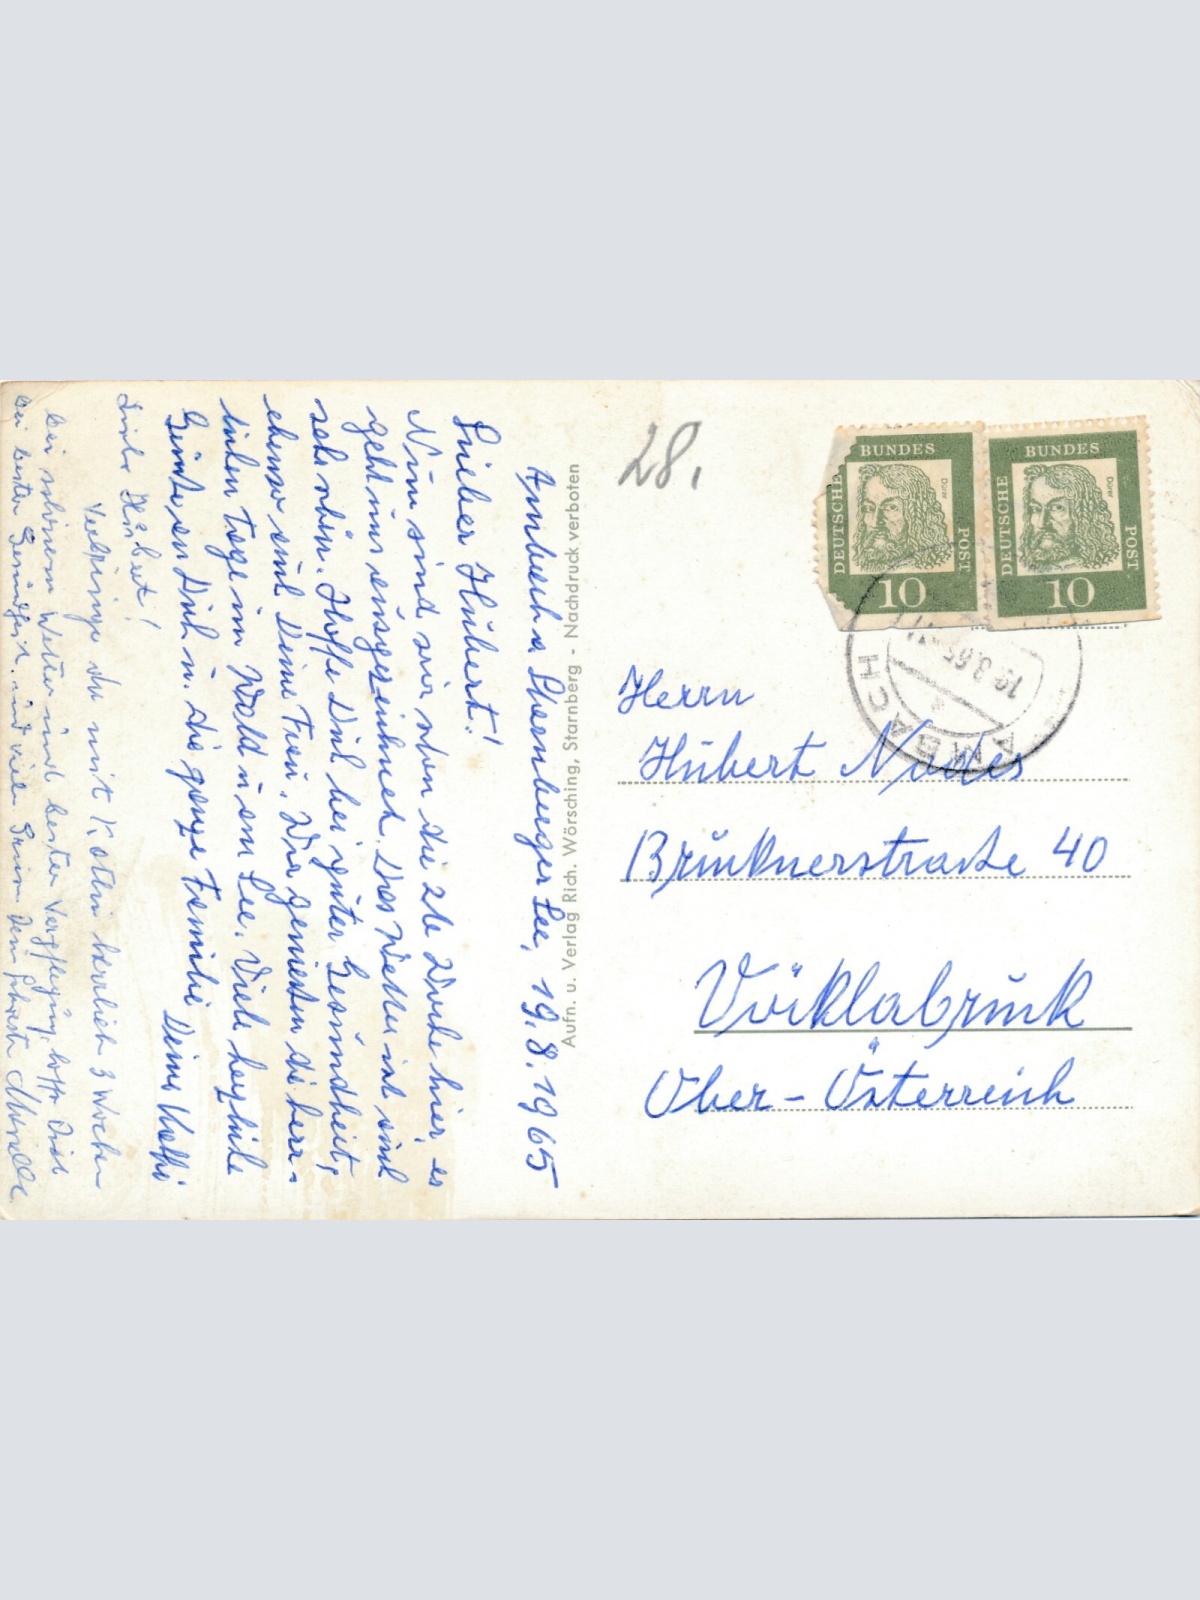 Ambach a Starnberger See, 19.8.1965
Lieber Hubert!
Nun sind wir schon die 2te Woche hier, es
geht uns ausgezeichnet. Das Wetter ist auch
sehr schön. Hoffe Dich bei guter Gesundheit,
ebenso auch Deine Frau. Wir genießen die herr-
lichen Tage im Wald u am See. Viele herzliche
Grüße an Dich u. die ganze Familie Deine
Liebr Hubert!
Verbringe da mit K. herrlich 3 Wochen
bei schönem Wetter und bester Verpflegung, hoffe Dich
bei bester Gesundheit und viele Grüße
Aufn. u. Verlag Rich. Wörsching, Starnberg - Nachdruck verboten
28.
DEUTSCHE BUNDES POST
Dürer
10
DEUTSCHE BUNDES POST
Dürer
10
AMBACH
Herrn
Hubert
Brucknerstraße 40
Vöcklabruck
Ober-Österreich